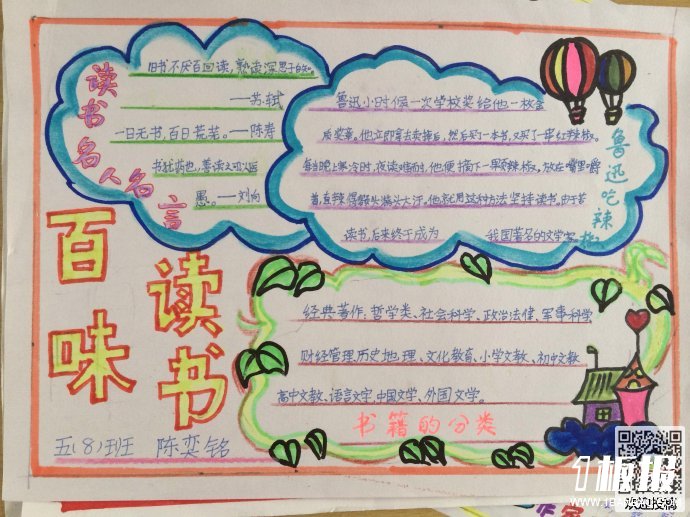 读书名人名言
旧书不厌百回读，熟读深思子自知。
——苏轼
一日无书，百日荒芜。——陈寿
书犹药也，善读之可以医
愚。——刘向
鲁迅小时候一次学校奖给他一枚金
质奖章。他立即拿去卖掉后，然后买了一本书，又买了一串红辣椒。
每当晚上寒冷时，夜读难耐，他便摘下一颗辣椒，放在嘴里嚼
着，直辣得额头满头大汗。他就用这种方法坚持读书。由于苦
读书，后来终于成为 我国著名的文学家。
鲁迅吃辣椒
百味
读书
经典著作：哲学类、社会科学、政治法律、军事科学
财经管理、历史地理、文化教育、小学文教、初中文教
高中文教、语言文字、中国文学、外国文学。
书籍的分类
五（8）班 陈奕铭
板报
欢迎投稿